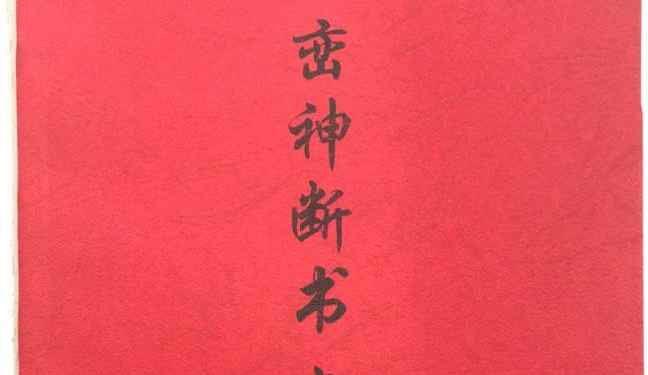 峦神断书